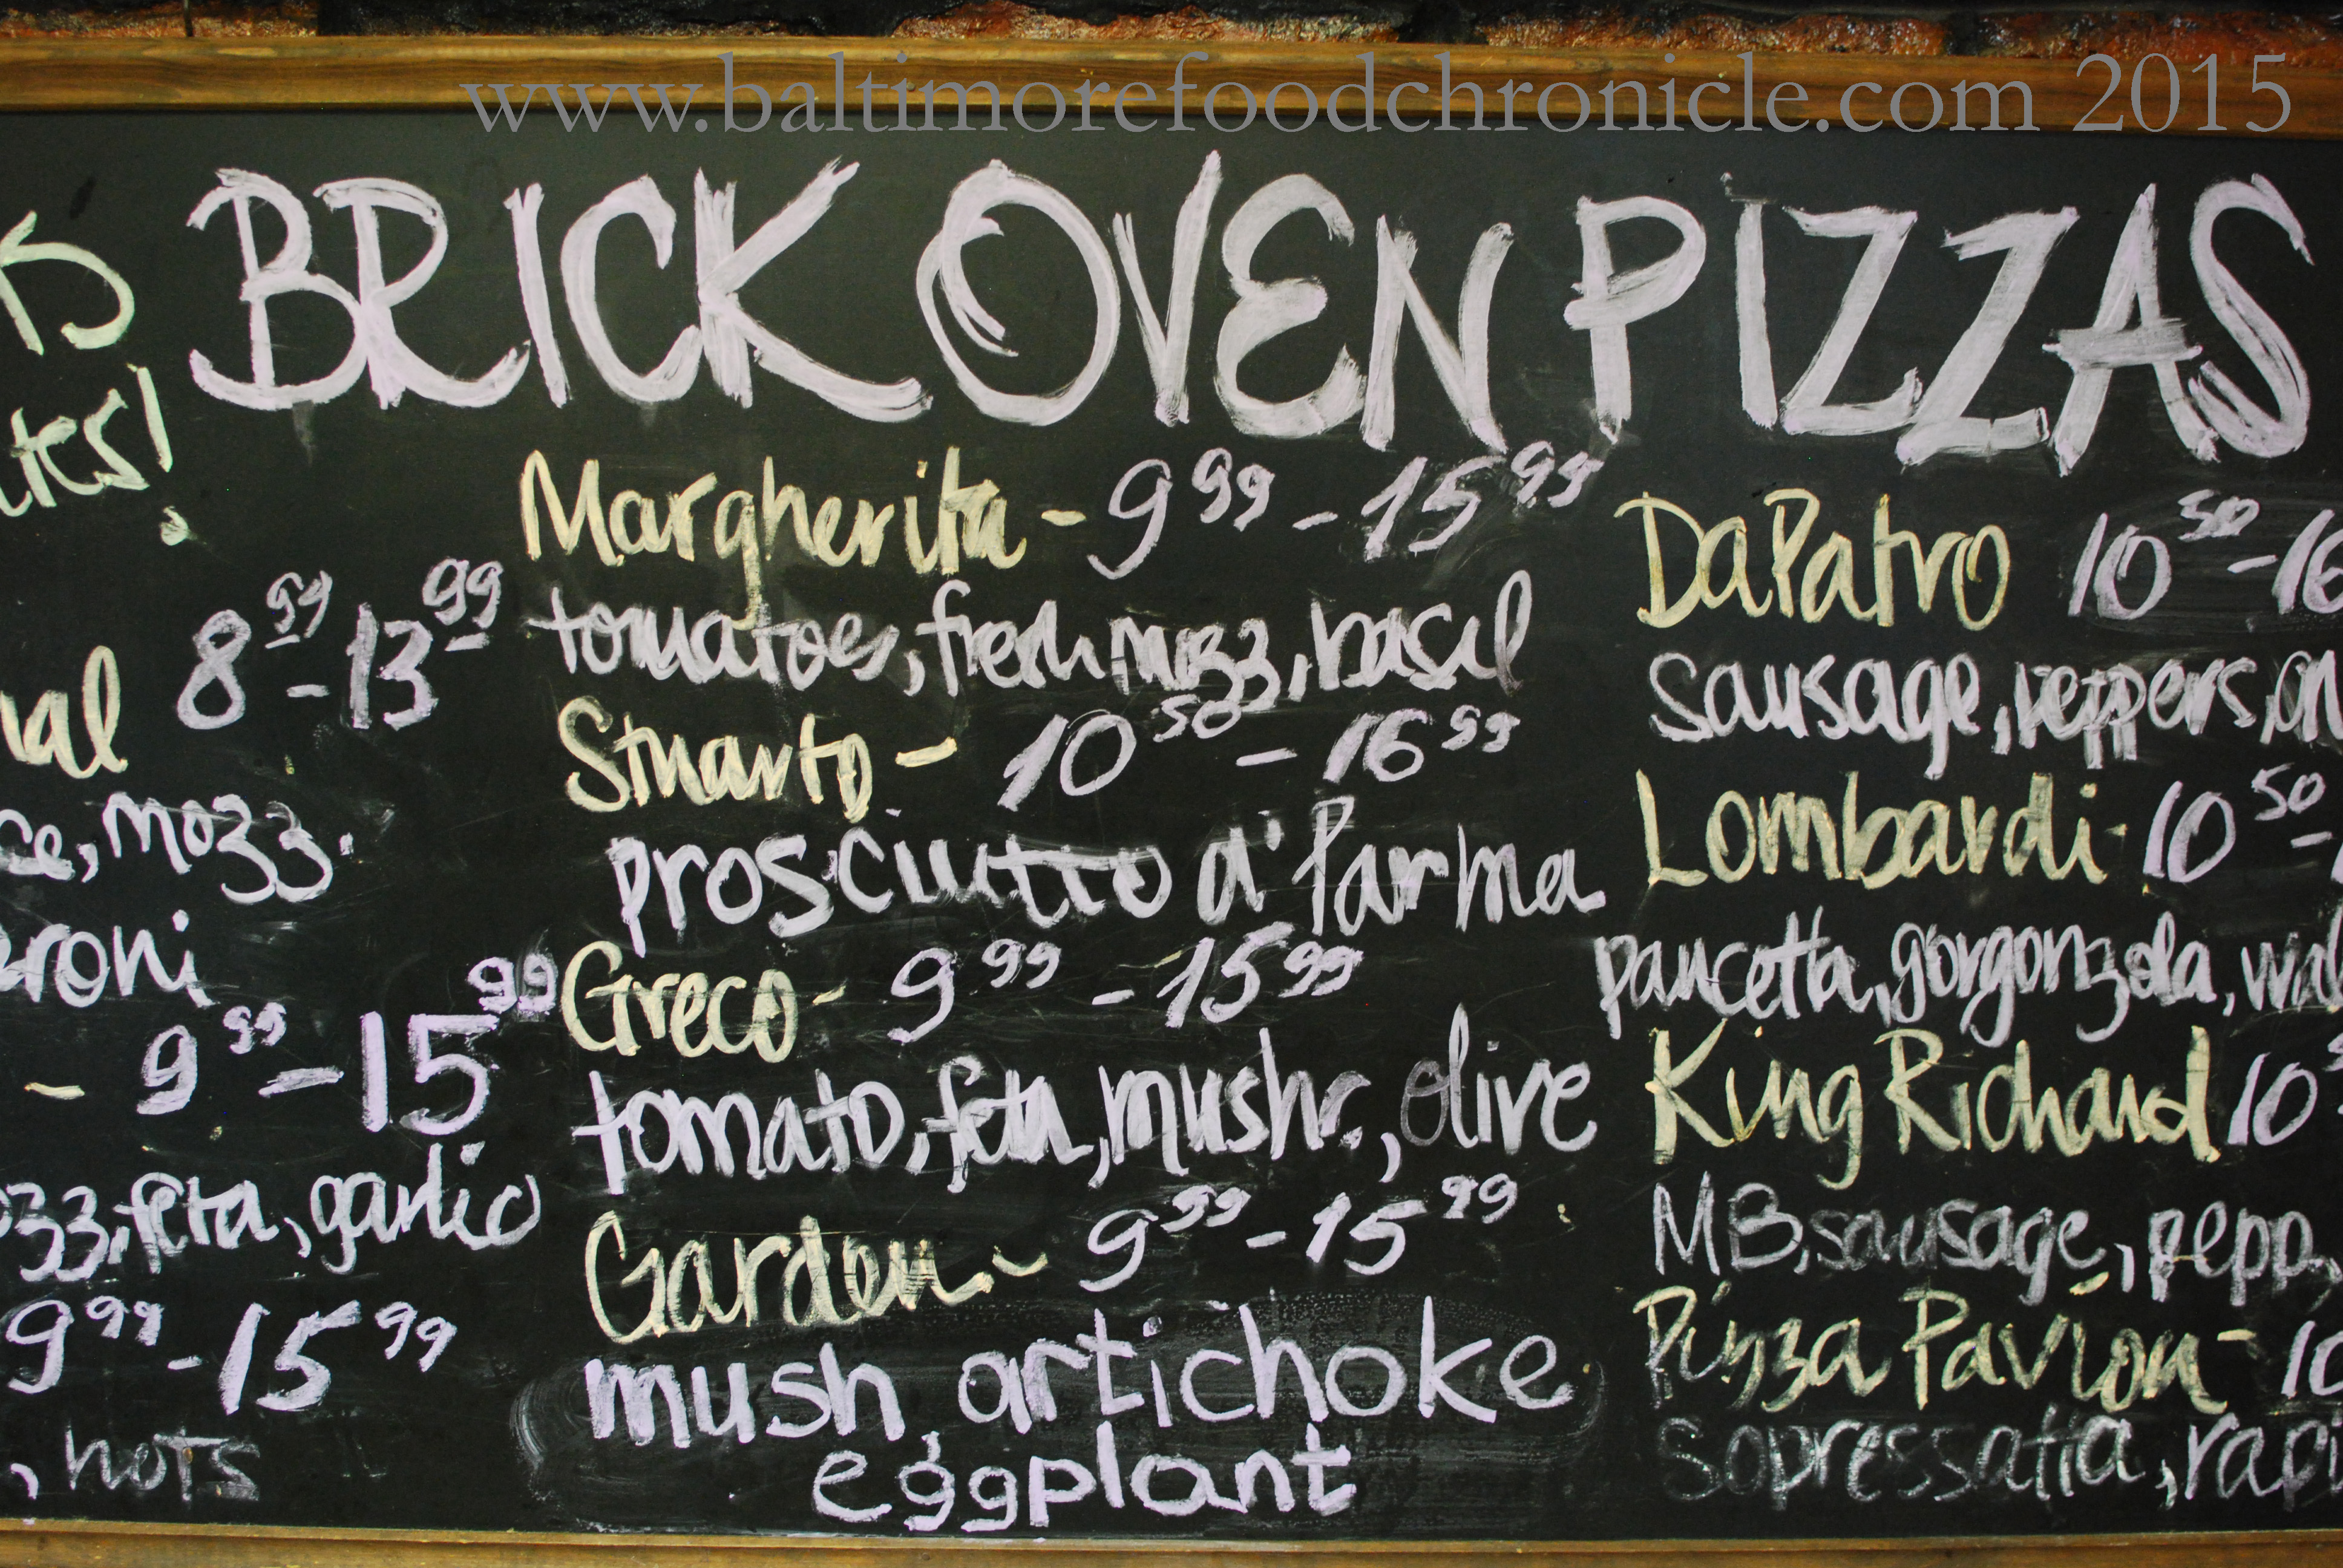 www.baltimorefoodchronicle.com 2015
BRICK OVEN PIZZAS
tes!
8 99 - 13 99
ce, mozz.
eroni
- 9 99 - 15 99
ozz, feta, garlic
9 99 - 15 99
, hots
Margherita - 9 99 - 15 99
tomatoes, fresh mozz, basil
Stuarto - 10 50 - 16 99
prosciutto d'Parma
Greco - 9 99 - 15 99
tomato, feta, mushr., olive
Garden - 9 99 - 15 99
mush, artichoke
eggplant
DaPatro 10 50 - 16
sausage, peppers, on
Lombardi - 10 50 -
pancetta, gorgonzola, wil
King Richard 10
MB, sausage, pepp,
Pizza Pavion - 10
Sopressatta, rapi